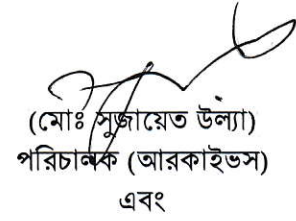 (মোঃ সুজায়েত উল্যা)
পরিচালক (আরকাইভস)
এবং